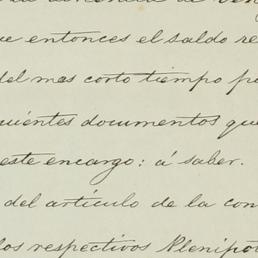 entonces el saldo re
del mas corto tiempo po
uientes documentos que
este encargo: á saber.
del artículo de la con
los respectivos Plenipo